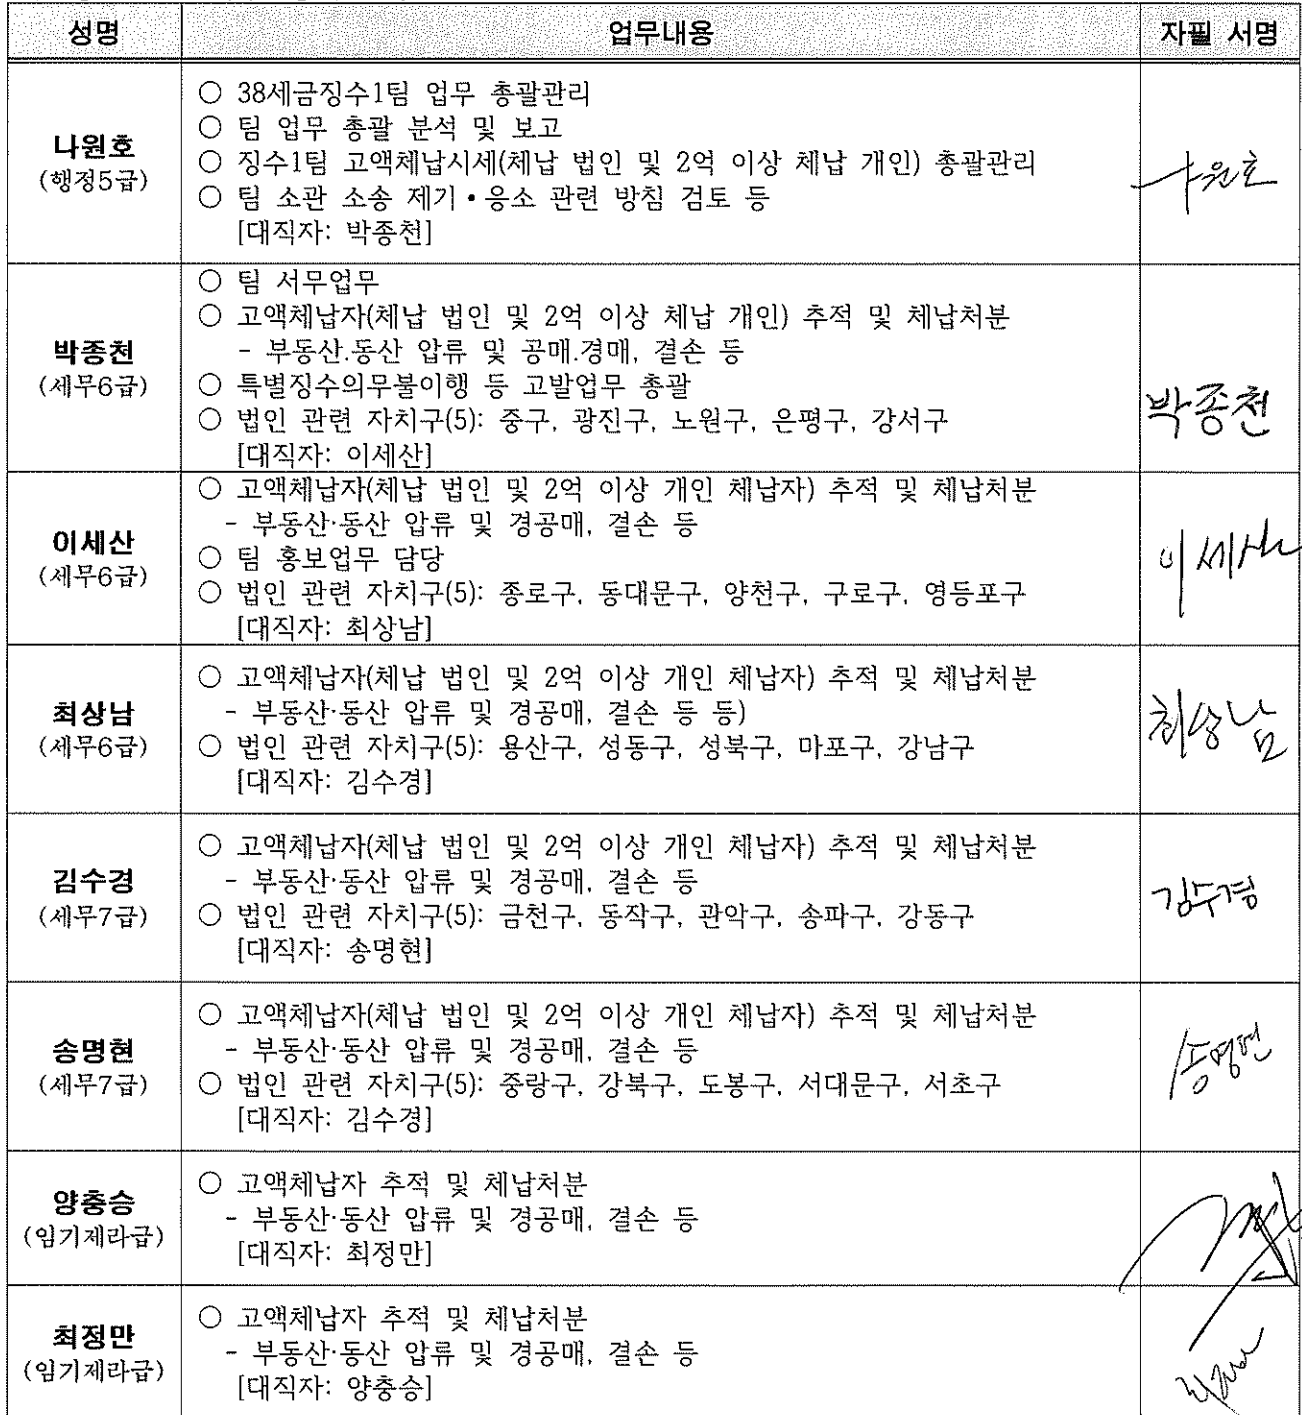 성명 업무내용 자필 서명
나원호
(행정5급)
○ 38세금징수1팀 업무 총괄관리
○ 팀 업무 총괄 분석 및 보고
○ 징수1팀 고액체납시세(체납 법인 및 2억 이상 체납 개인) 총괄관리
○ 팀 소관 소송 제기•응소 관련 방침 검토 등
[대직자: 박종천]
나원호
박종천
(세무6급)
○ 팀 서무업무
○ 고액체납자(체납 법인 및 2억 이상 체납 개인) 추적 및 체납처분
- 부동산.동산 압류 및 공매.경매, 결손 등
○ 특별징수의무불이행 등 고발업무 총괄
○ 법인 관련 자치구(5): 중구, 광진구, 노원구, 은평구, 강서구
[대직자: 이세산]
박종천
이세산
(세무6급)
○ 고액체납자(체납 법인 및 2억 이상 개인 체납자) 추적 및 체납처분
- 부동산·동산 압류 및 경공매, 결손 등
○ 팀 홍보업무 담당
○ 법인 관련 자치구(5): 종로구, 동대문구, 양천구, 구로구, 영등포구
[대직자: 최상남]
이세산
최상남
(세무6급)
○ 고액체납자(체납 법인 및 2억 이상 개인 체납자) 추적 및 체납처분
- 부동산·동산 압류 및 경공매, 결손 등 등)
○ 법인 관련 자치구(5): 용산구, 성동구, 성북구, 마포구, 강남구
[대직자: 김수경]
최상남
김수경
(세무7급)
○ 고액체납자(체납 법인 및 2억 이상 개인 체납자) 추적 및 체납처분
- 부동산·동산 압류 및 경공매, 결손 등
○ 법인 관련 자치구(5): 금천구, 동작구, 관악구, 송파구, 강동구
[대직자: 송명현]
김수경
송명현
(세무7급)
○ 고액체납자(체납 법인 및 2억 이상 개인 체납자) 추적 및 체납처분
- 부동산·동산 압류 및 경공매, 결손 등
○ 법인 관련 자치구(5): 중랑구, 강북구, 도봉구, 서대문구, 서초구
[대직자: 김수경]
송명현
양충승
(임기제라급)
○ 고액체납자 추적 및 체납처분
- 부동산·동산 압류 및 경공매, 결손 등
[대직자: 최정만]
최정만
(임기제라급)
○ 고액체납자 추적 및 체납처분
- 부동산·동산 압류 및 경공매, 결손 등
[대직자: 양충승]